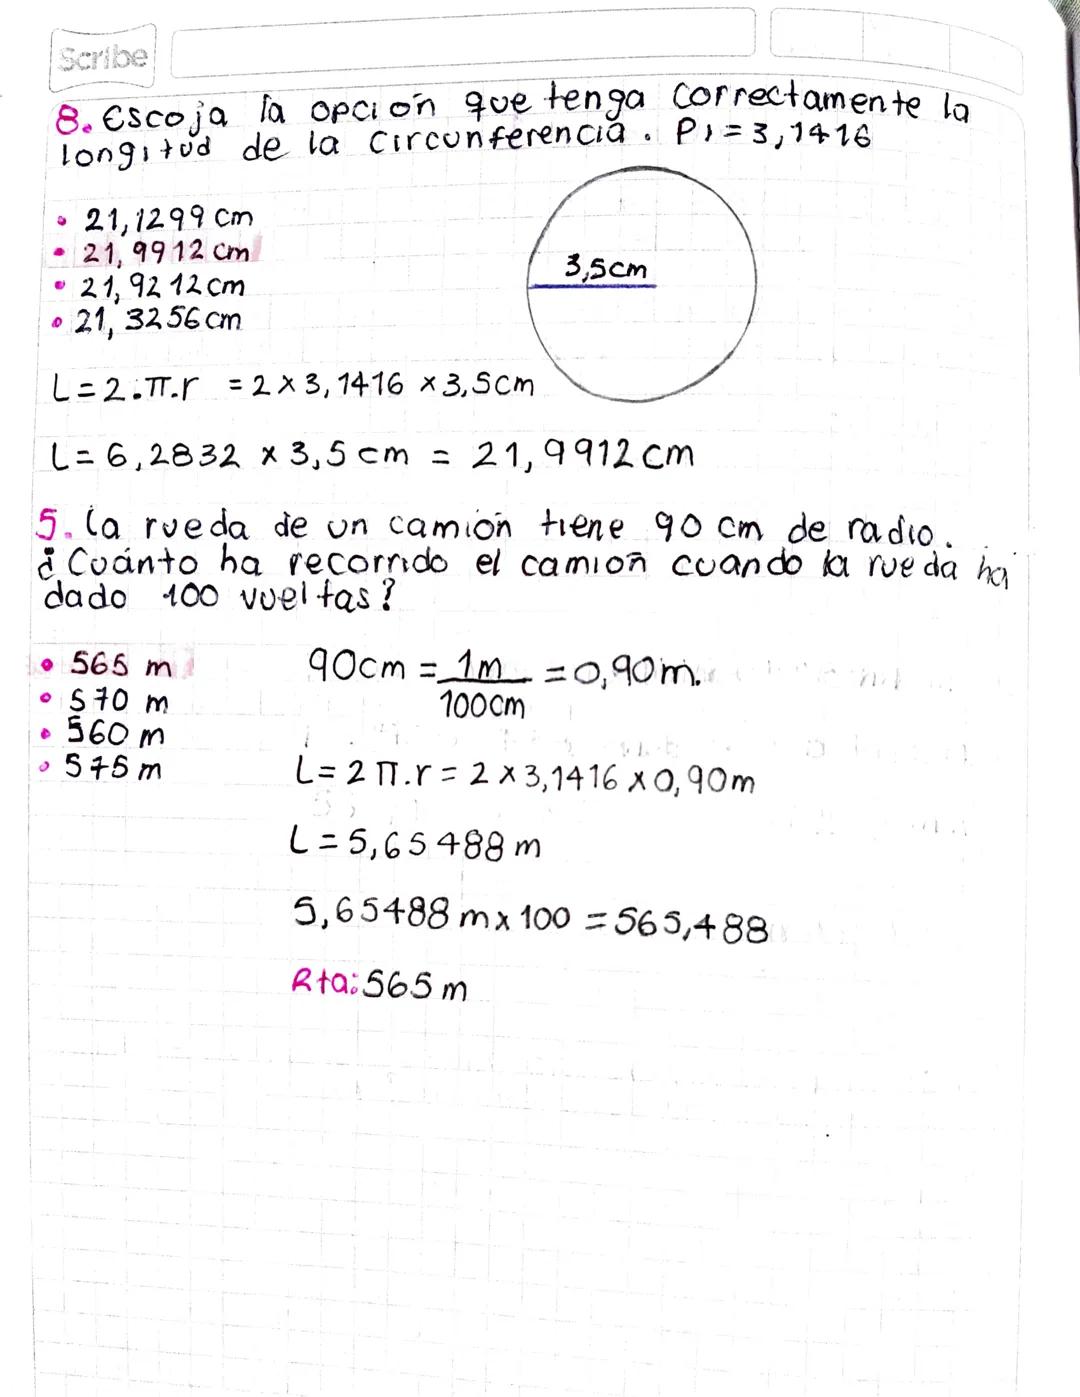 Scribe
8. Escoja la opción que tenga correctamente la
longitud de la circunferencia. Pi = 3,1416
• 21,1299 cm
• 21,9912 cm
• 21,9212 cm
• 21,3256 cm
3,5cm
L = 2.π.r = 2 x 3,1416 x 3,5cm
L = 6,2832 x 3,5 cm = 21,9912 cm
5. la rueda de un camión tiene 90 cm de radio.
¿Cuánto ha recorrido el camión cuando la rueda ha
dado 100 vueltas?
• 565 m
• 570 m
• 560 m
• 575 m
90cm = 1m = 0,90m.
100cm
L = 2 π.r = 2 x 3,1416 x 0,90m
L = 5,65488 m
5,65488 m x 100 = 565,488
Rta: 565 m